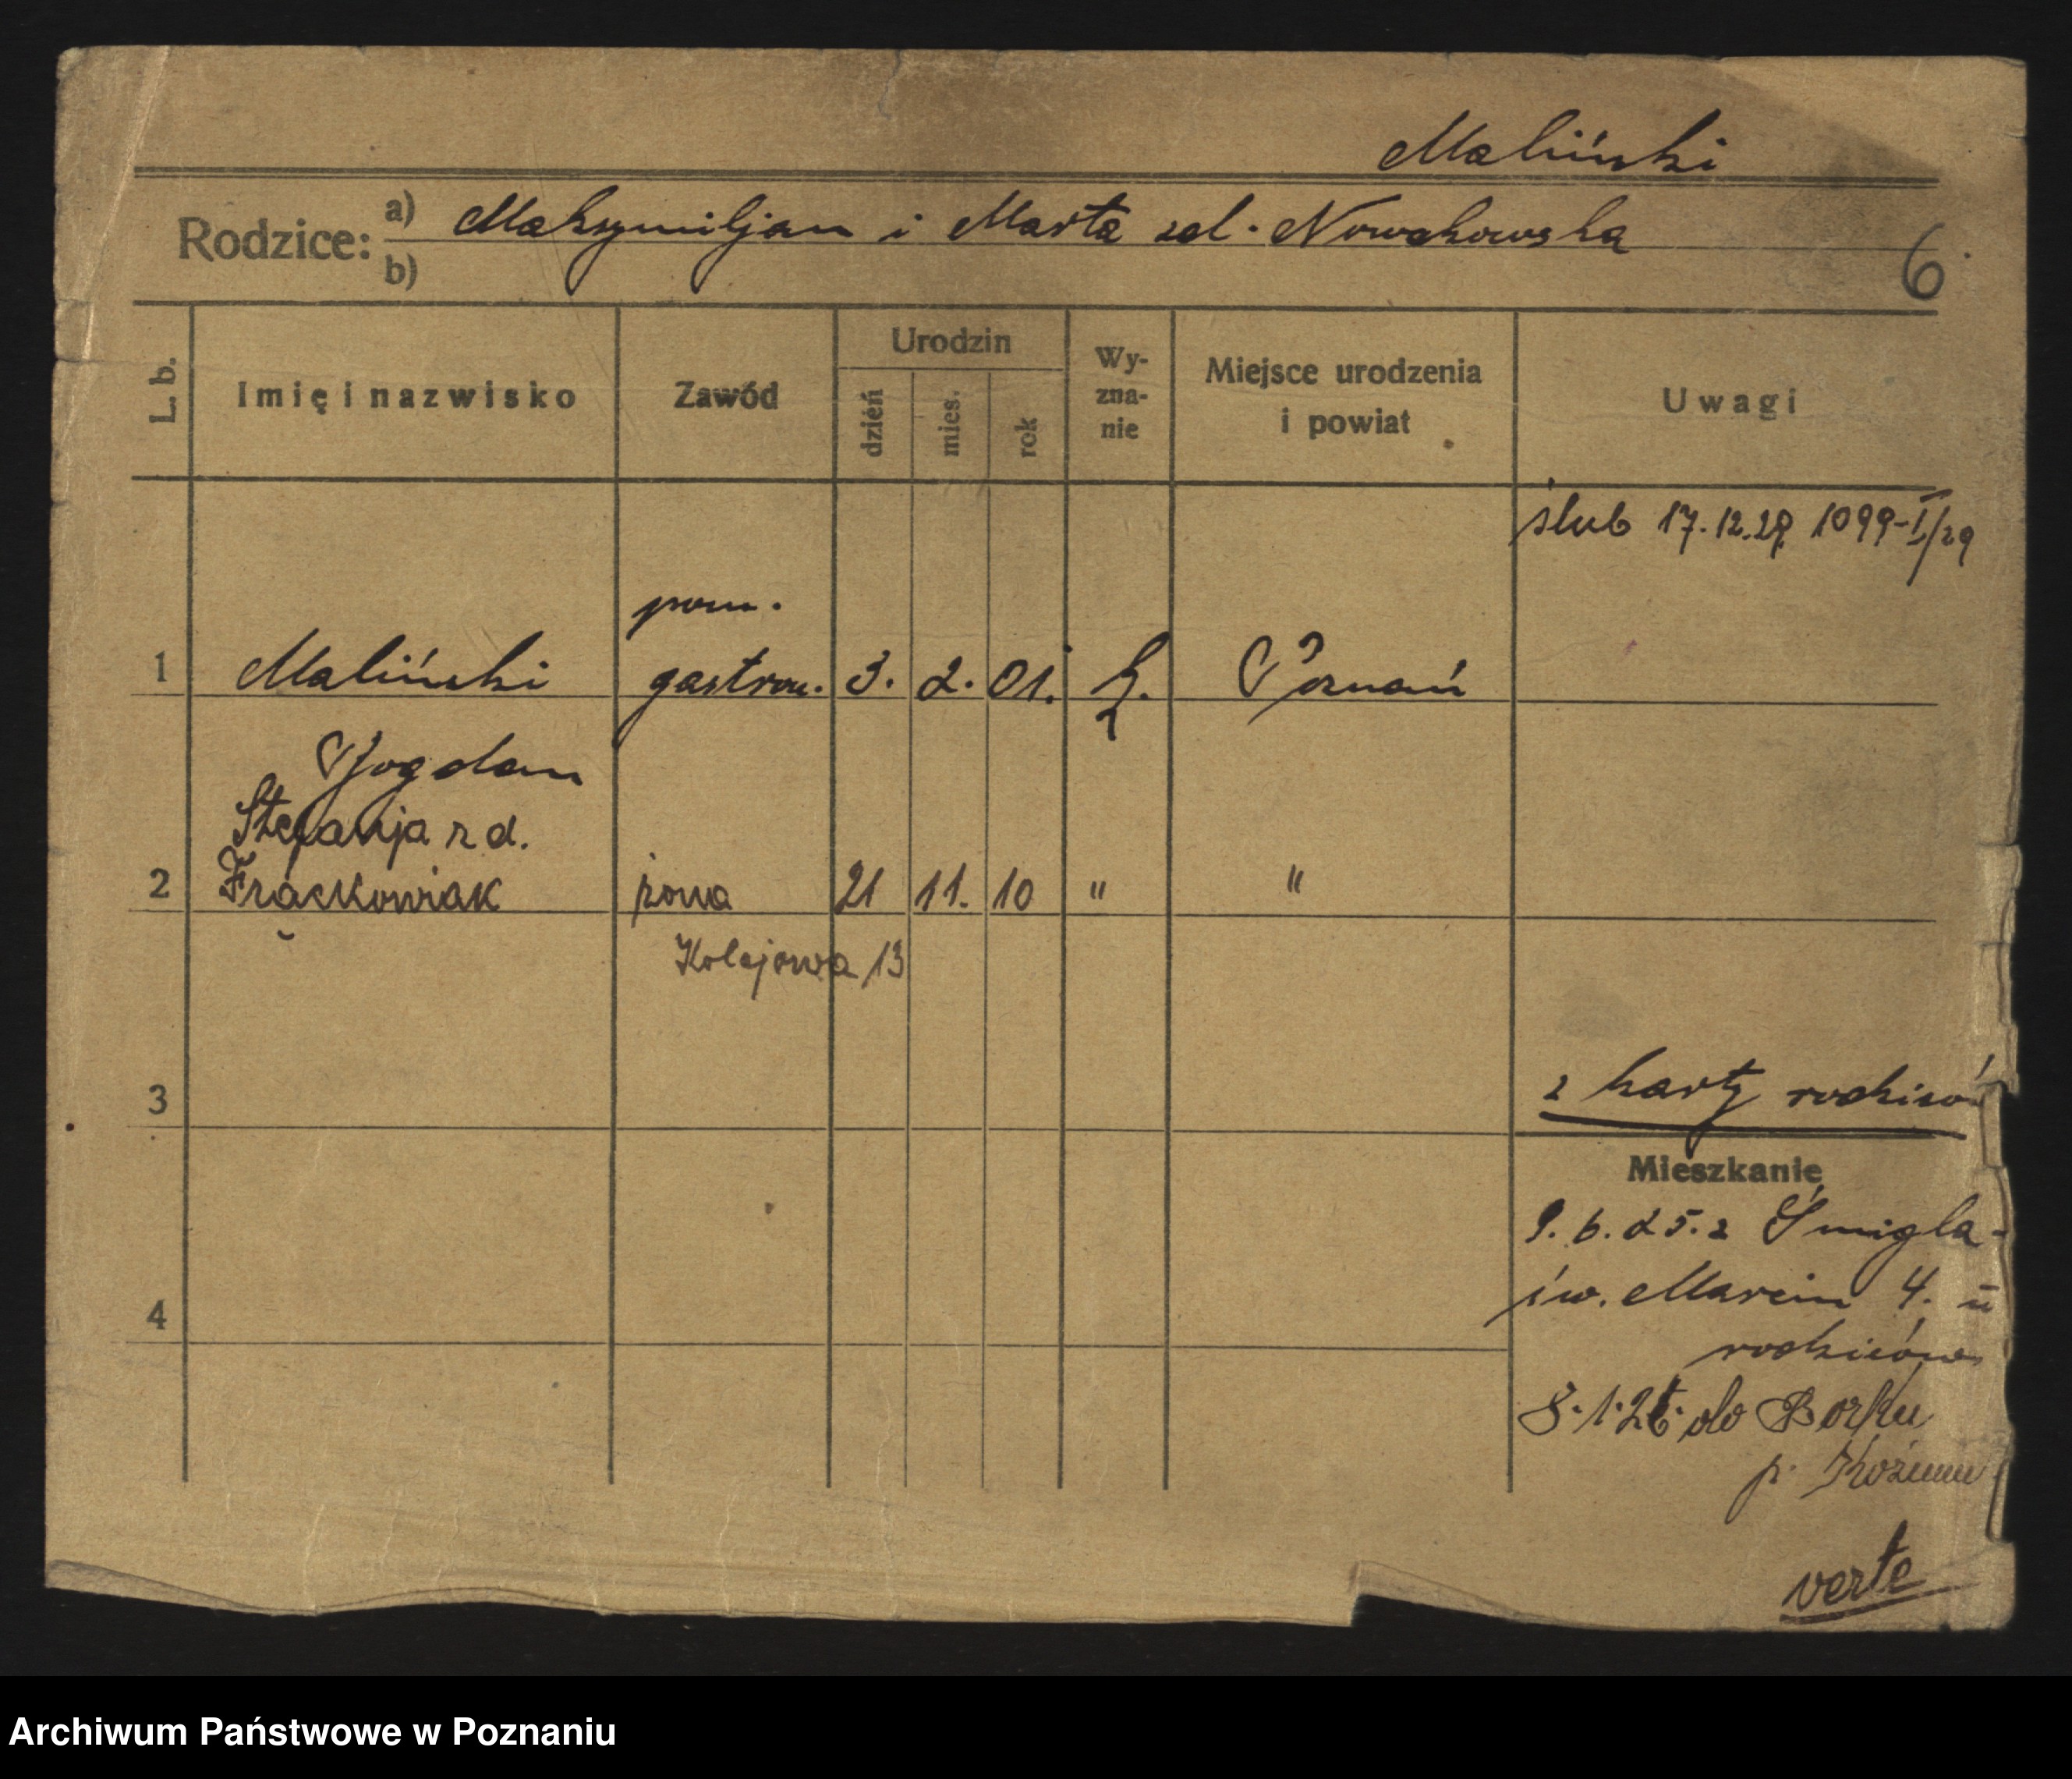 Maliński
Rodzice: a) Maksymiljan i Marta zd. Nowakowska
b)
6
L. b. Imię i nazwisko Zawód Urodzin dzień mies. rok Wy-zna-nie Miejsce urodzenia i powiat Uwagi
ślub 17.12.29 1099-I/29
pom.
1 Maliński gastron. 3. 2. 01. k. Poznań
Bogdan
Stefanja z d.
2 Frąckowiak żona 21 11. 10 " "
Kolejowa 13
3 z karty rodziców
Mieszkanie
9. 6. 25. z Śmigla-
4 św. Marcin 4. u
rodziców
8.1.26. do Borku
p. Koźmin
verte
Archiwum Państwowe w Poznaniu